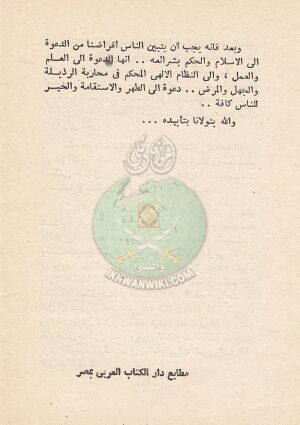 وبعد فانه يجب ان يتبين الناس اغراضنا من الدعوة
الى الاسلام والحكم بشرائعه .. انها الدعوة الى العلم
والعمل ، والى النظام الالهى المحكم فى محاربة الرذيلة
والجهل والمرض .. دعوة الى الطهر والاستقامة والخير
للناس كافة ..
والله يتولانا بتأييده ...
وأعدوا
IKHWANWIKI.COM
مطابع دار الكتاب العربى بمصر